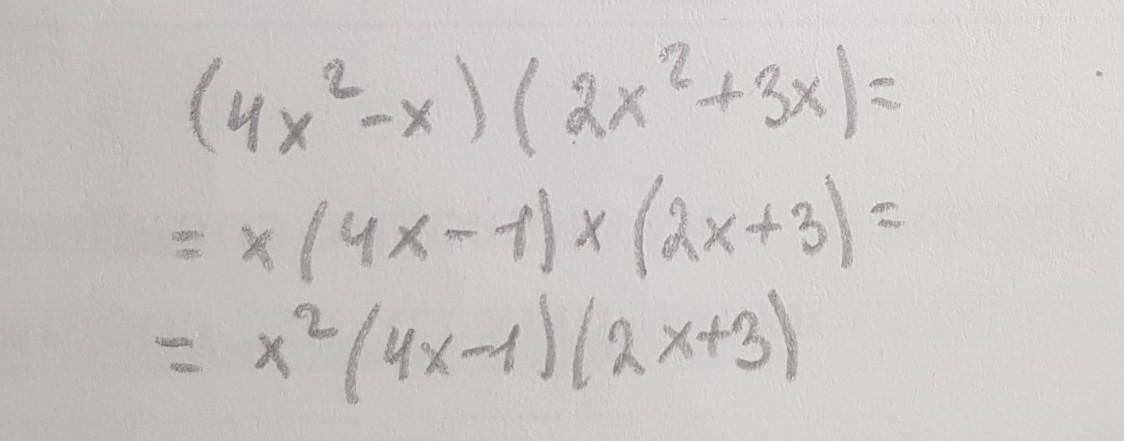 (4x²-x)(2x²+3x)=
=x(4x-1)x(2x+3)=
=x²(4x-1)(2x+3)